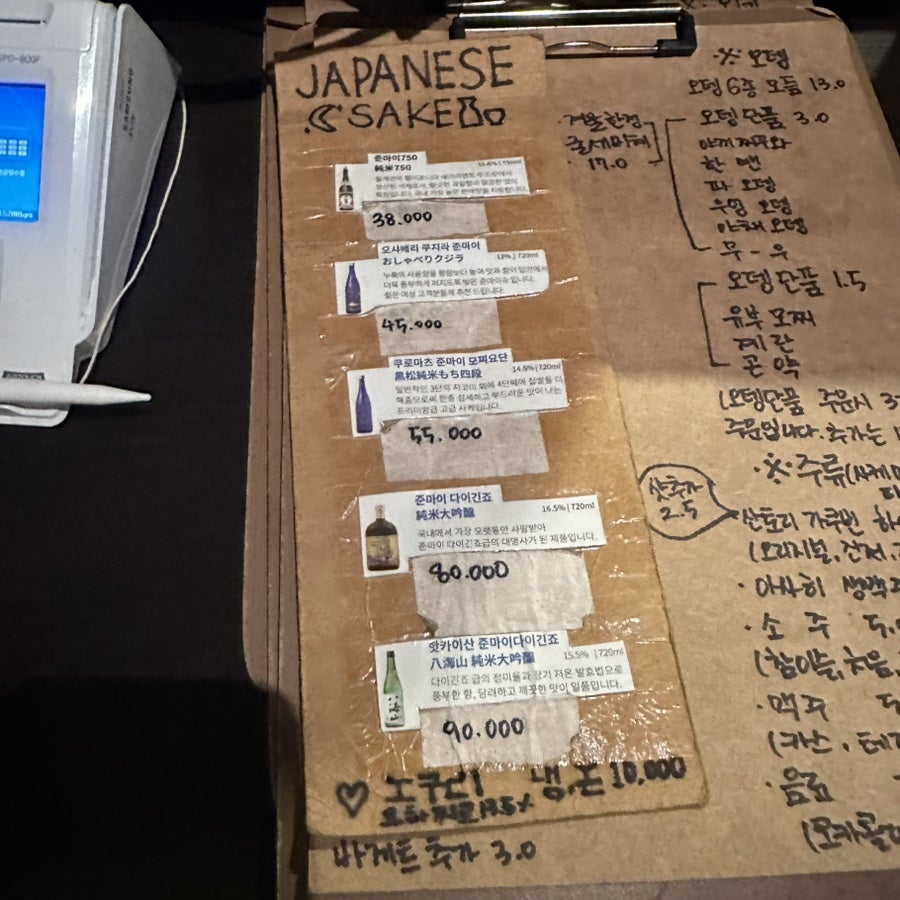 JAPANESE
SAKE
준마이750
純米750
38.000
오샤베리 쿠지라 준마이
おしゃべりクジラ
13% | 720ml
누룩의 사용량을 평균보다 높여 맛과 향이 입안에서
더욱 풍부하게 퍼지도록 빚은 준마이슈 입니다.
젊은 여성 고객분들께 추천 드립니다.
45.000
쿠로마츠 준마이 모찌요단
黒松純米もち四段
14.5% | 720ml
일반적인 3단의 사코미 외에 4단째에 찹쌀을 더
해줌으로써 한층 섬세하고 부드러운 맛이 나는
프리미엄급 고급 사케입니다.
55.000
준마이 다이긴죠
純米大吟醸
16.5% | 720ml
국내에서 가장 오랫동안 사랑받아
준마이 다이긴죠급의 대명사가 된 제품입니다.
80.000
핫카이산 준마이다이긴죠
八海山 純米大吟醸
15.5% | 720ml
다이긴죠 급의 정미율과 장기 저온 발효법으로
풍부한 향, 담려하고 깨끗한 맛이 일품입니다.
90.000
♡ 도쿠리 냉,온 10,000
바게트 추가 3.0
※ 오뎅
오뎅 6종 모듬 13.0
겨울한정
17.0
오뎅 단품 3.0
한 펜
파 오뎅
우엉 오뎅
야채 오뎅
무 - 우
오뎅 단품 1.5
유부 모찌
계 란
곤 약
(오뎅단품 주문시 3
주문입니다. 추가는
※ 주류(사케
샷추가
2.5
산토리 가쿠빈 하
(오리지널, 진저,
· 아사히 생맥
· 소 주 5.
(참이슬, 처음,
· 맥주 5
(카스, 테
· 음료
(코카콜
SAMSUNG